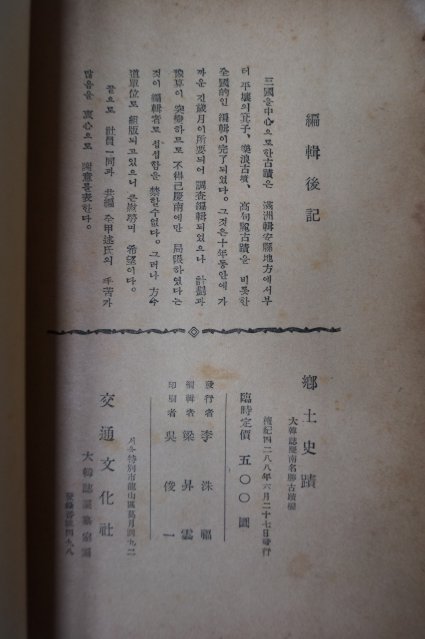 編輯後記
三國을中心으로한古蹟은 滿洲輯安縣地方에서부
터 平壤의箕子、樂浪古墳、高句麗古蹟을 비롯한
全國的인 編輯이完了되었다。그것은十年동안에가
까운 긴歲月이所要되어 調査編輯되었으나 計劃과
豫算이 突變하므로 不得已慶南에만 局限하였다는
것이 編輯者로 섭섭함을 禁할수없다。그러나 方今
道單位로 組版되고있으니 큰 며 希望이다。
끝으로 社員一同과 共編 李甲述氏의 辛苦가
많음을 衷心으로 謝意를表한다。
鄕土史蹟
大韓誌慶南名勝古蹟編
檀紀四二八八年六月二十七日發行
臨時定價 五〇〇圜
發行者 李洙福
編輯者 梁昇雲
印刷者 吳俊一
서울特別市龍山區葛月洞九二
交通文化社
大韓誌編纂室編
登錄番號四九八